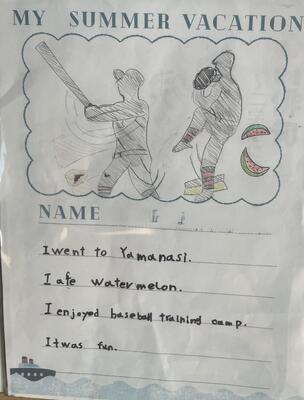 MY SUMMER VACATION
NAME
I went to Yamanasi.
I ate watermelon.
I enjoyed baseball training camp.
It was fun.